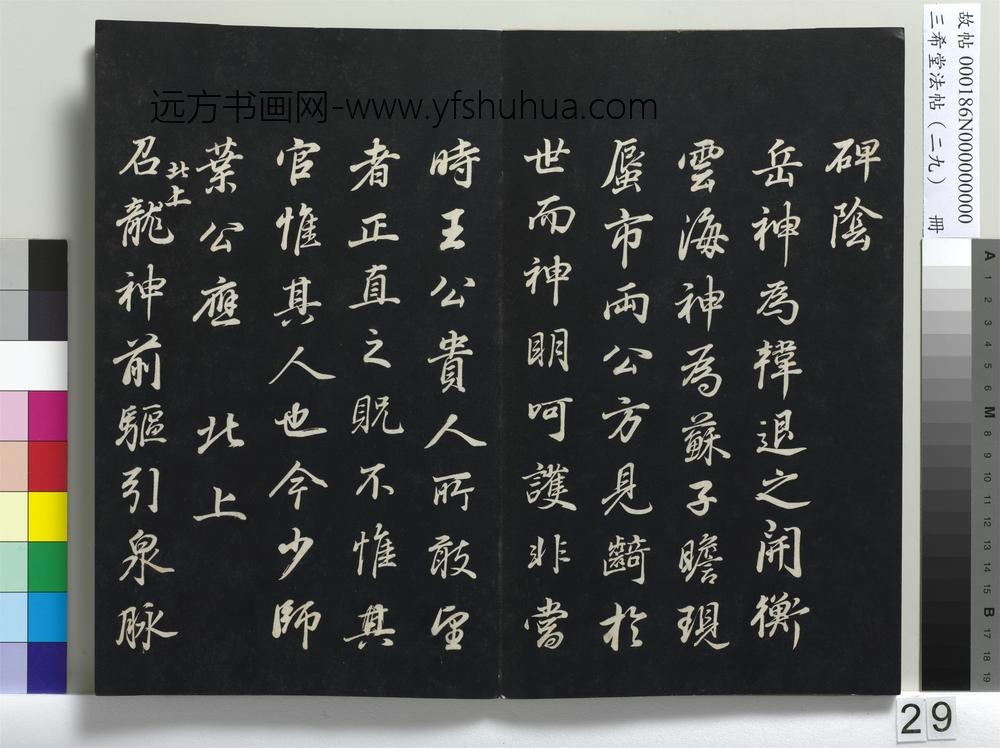 碑陰
岳神為韓退之開衡
雲海神為蘇子瞻現
蜃市两公方見齮於
世而神明呵護非當
時王公貴人所敢望
者正直之貺不惟其
官惟其人也今少師
葉公應 北上
北上
召龍神前驅引泉脉
远方书画网-www.yfshuhua.com
故帖 000186N000000000
三希堂法帖(二九) 冊
29
A 1 2 3 4 5 6 M 8 9 10 11 12 13 14 15 B 17 18 19